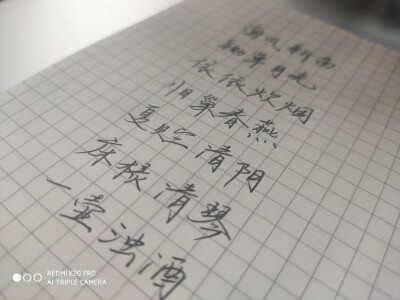 风新雨
月光
依依炊烟
归巢春燕
夏清阴
床横清琴
一壶浊酒
REDMI K20 PRO
AI TRIPLE CAMERA